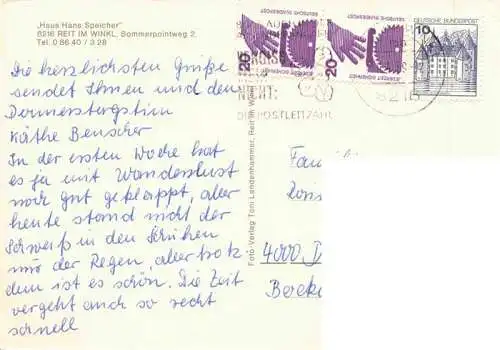 „Haus Hans Speicher"
8216 REIT IM WINKL, Sommerpointweg 2
Tel. 0 86 40 / 3 28
Die herzlichsten Grüße
sendet Ihnen und den
Donnerstagstim
Käthe Benscher
In der ersten Woche hat
es ja mit Wanderslust
noch gut geklappt, aber
heute stand nicht der
Schweiß in den Schuhen
nur der Regen, aber trotz
dem ist es schön. Die Zeit
vergeht auch so recht
schnell
Foto-Verlag Toni Lendenhammer, Reit im Winkl
DEUTSCHE BUNDESPOST
20
DEUTSCHE BUNDESPOST
20
DEUTSCHE BUNDESPOST
10
NICHT:
DIE POSTLEITZAHL
8216
Famili
4000 D